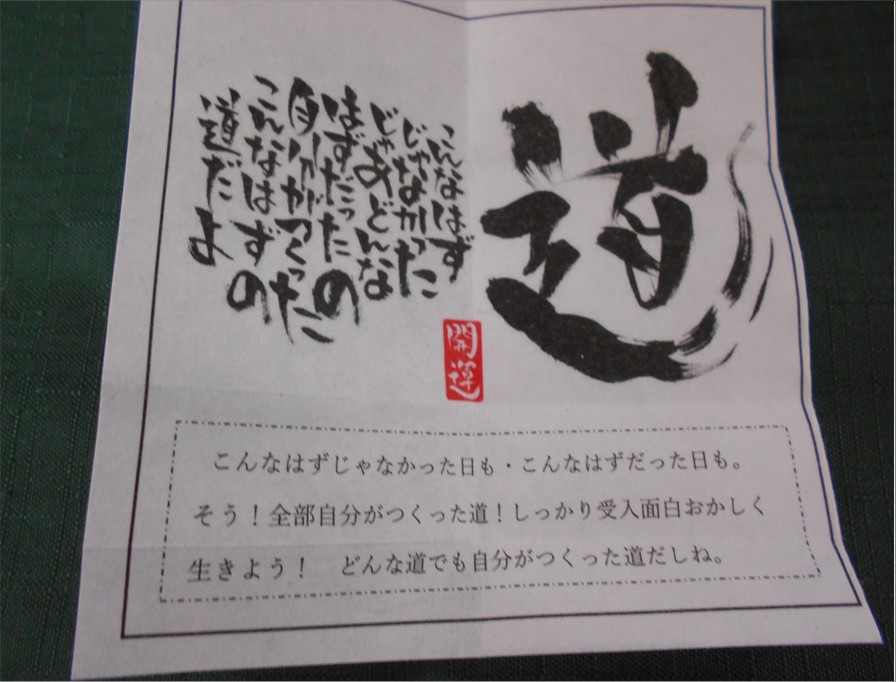 道
こんなはず
じゃなかった
じゃあどんな
はずだったの
自分がつくった
こんなはずの
道だよ
開運
こんなはずじゃなかった日も・こんなはずだった日も。
そう！全部自分がつくった道！しっかり受入面白おかしく
生きよう！　どんな道でも自分がつくった道だしね。